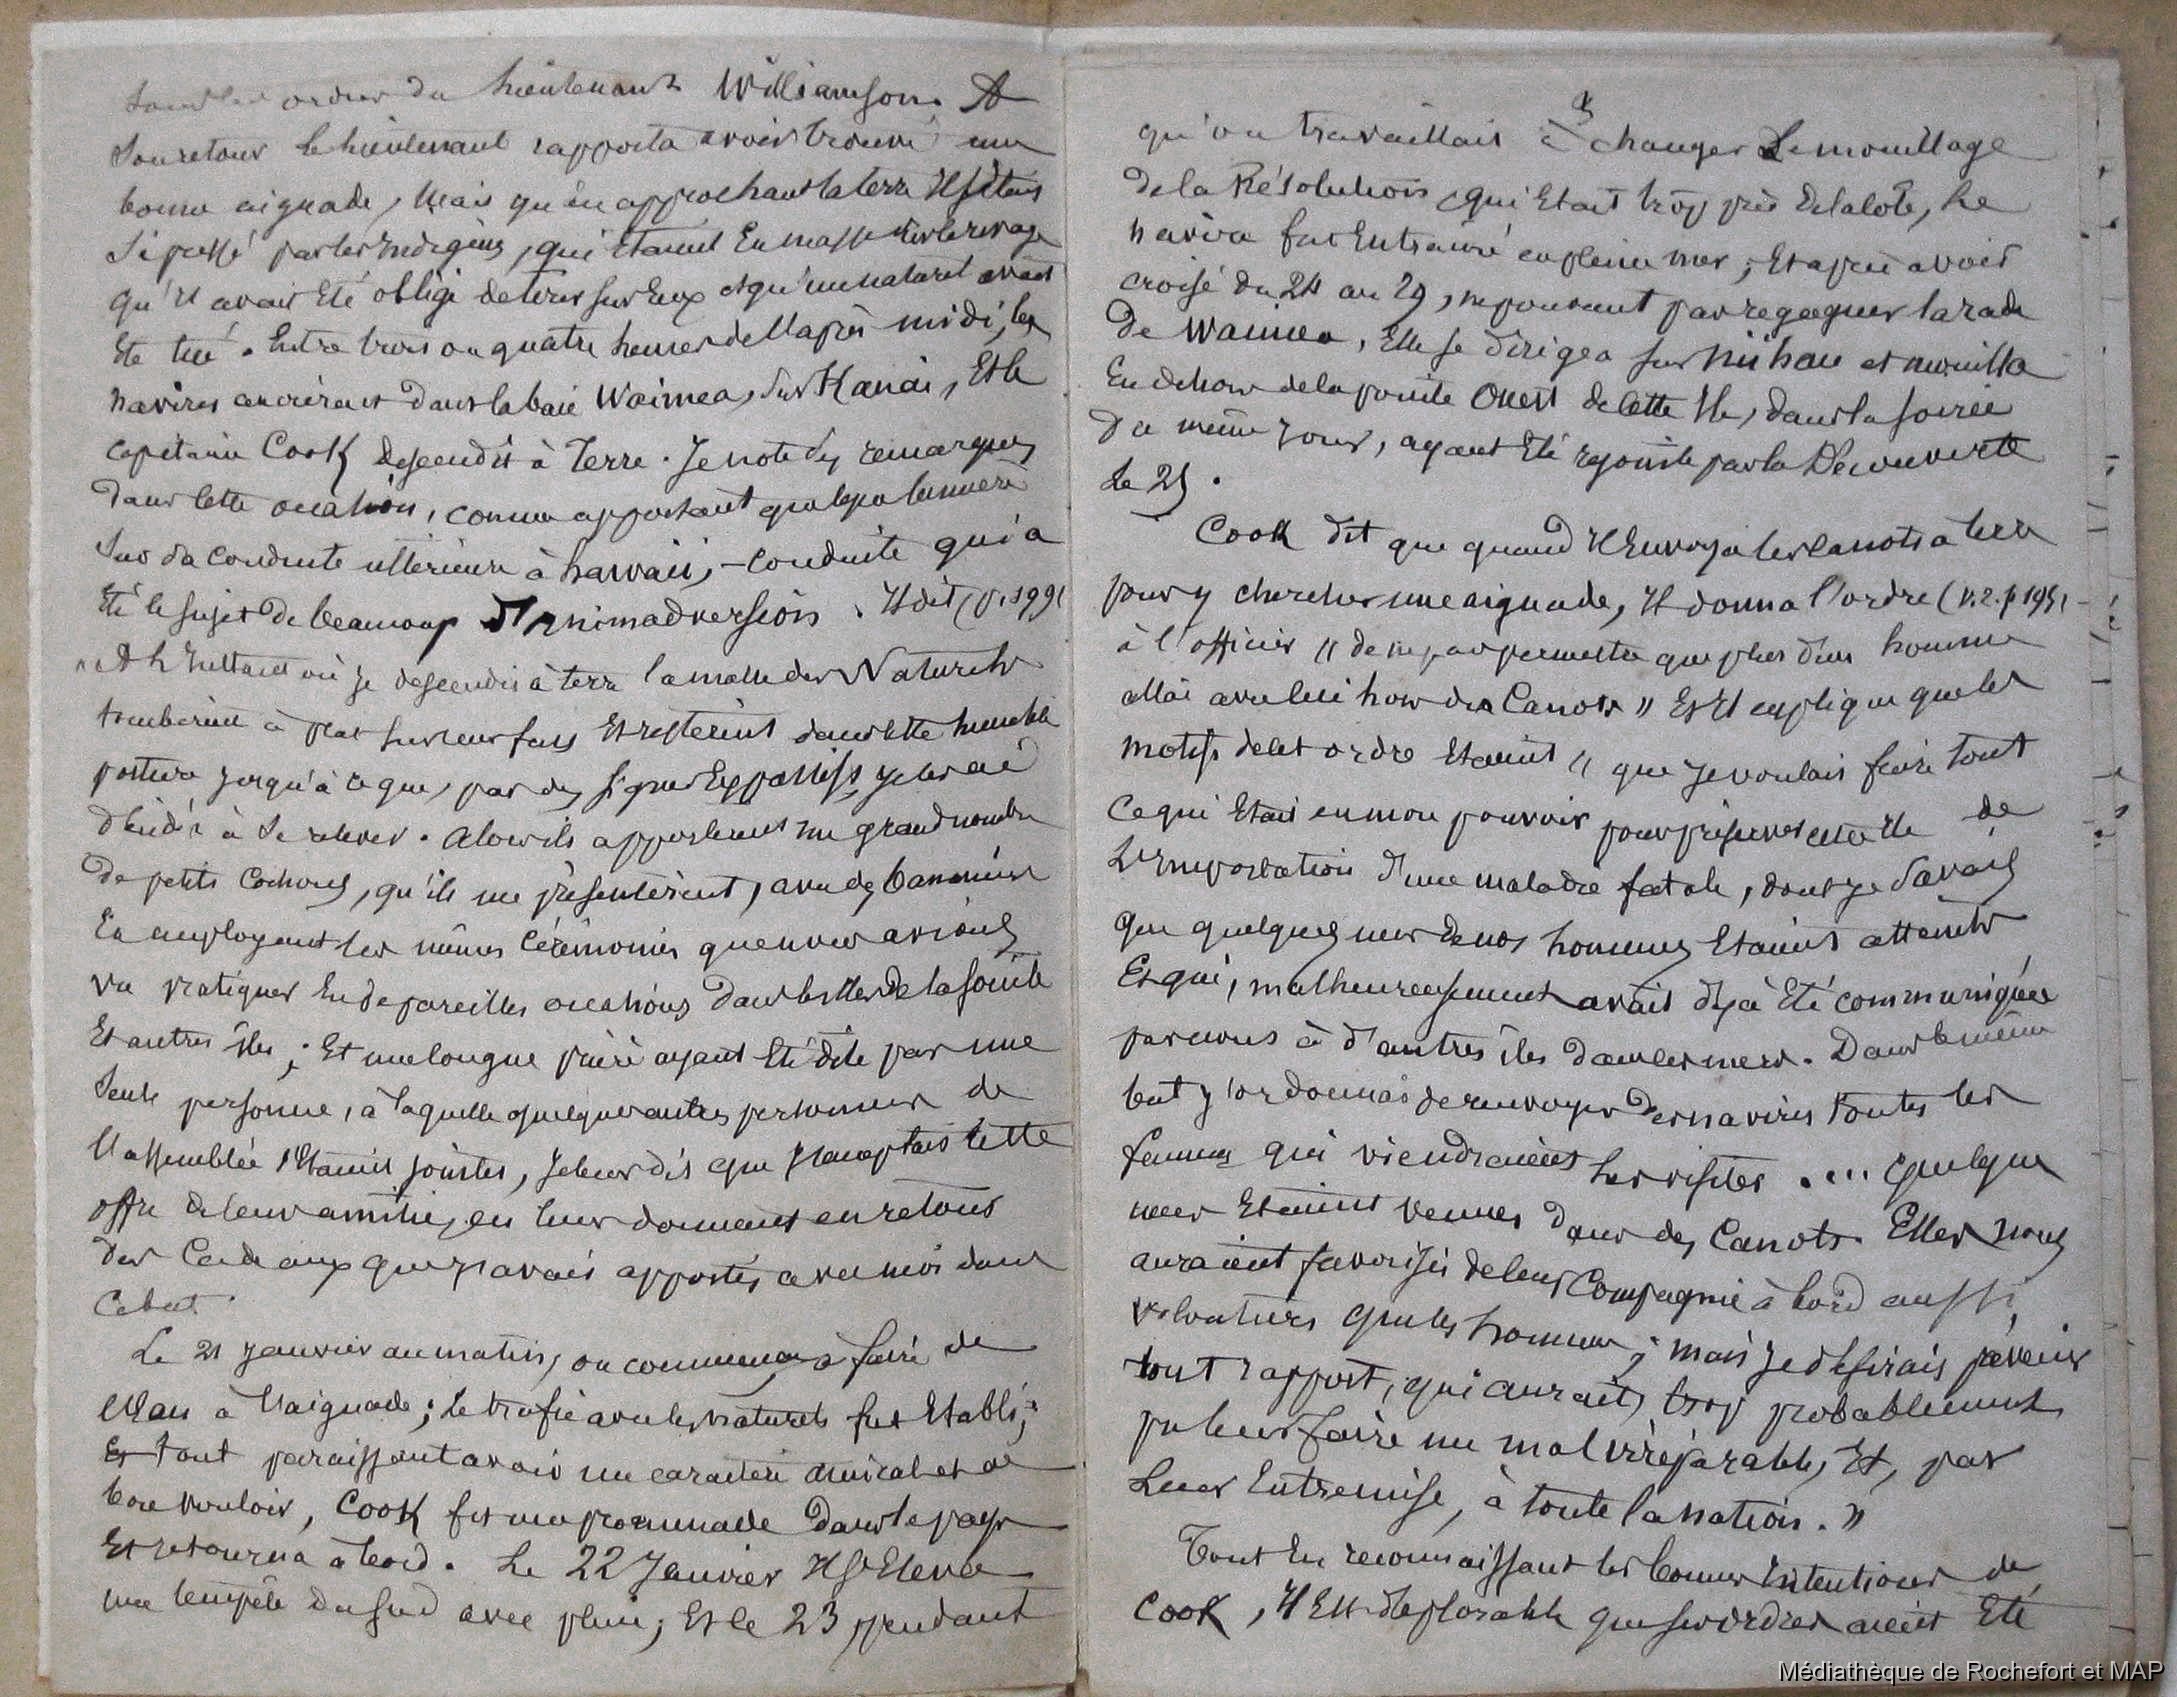 sous les ordres du lieutenant Williamson. A
son retour le lieutenant rapporta avoir trouvé une
bonne aiguade, Mais qu'en approchant la terre Il fut
si pressé par les Indigènes, qui étaient En masse sur le rivage
qu'Il avait Eté obligé de tirer sur Eux et qu'un naturel avait
Eté tué. Entre trois ou quatre heures de l'après midi, les
navires ancrèrent dans la baie Waimea, sur Kauai, Et le
capitaine Cook descendit à Terre. Je note des remarques
dans cette occasion, comme apportant quelque lumière
sur sa conduite ultérieure à hawaii, - conduite qui a
Eté le sujet de beaucoup d'Animadversion. Il dit (p. 199)
"A l'Instant où je descendis à terre la masse des Naturels
tombèrent à plat sur leurs faces Et restèrent dans cette humble
posture jusqu'à ce que, par des signes Expressifs, je les ai
décidés à se relever. Alors ils apportèrent un grand nombre
de petits cochons, qu'ils me présentèrent, avec des bananiers
En employant les mêmes Cérémonies que nous avions
vu pratiquer En de pareilles occasions dans les Iles de la société
Et autres îles ; Et une longue prière ayant Eté dite par une
seule personne, à laquelle quelques autres personnes de
l'assemblée s'étaient jointes, je leur dis que j'acceptais cette
offre de leur amitié, en leur donnant en retour
des Cadeaux que j'avais apportés avec moi dans
ce but.
Le 21 Janvier au matin, on commença à faire de
l'Eau à l'aiguade ; le trafic avec les naturels fut Etabli ;
Et tout paraissant avoir un caractère amical et de
bon vouloir, Cook fit une promenade dans le pays
Et retourna à bord. Le 22 Janvier Il s'Eleva
une tempête du sud avec pluie ; Et le 23, pendant
qu'on travaillait à changer Le mouillage
de la Résolution, qui Etait trop près de la côte, Le
navire fut Entrainé en pleine mer ; Et après avoir
croisé du 24 au 29, ne pouvant pas regagner la rade
de Waimea, Elle se dirigea sur Niihau et mouilla
En dehors de la pointe Ouest de cette Ile, dans la soirée
du même jour, ayant Eté rejointe par la Découverte
le 25.
Cook dit que quand Il Envoya les canots à terre
pour y chercher une aiguade, Il donna l'ordre (v. 2. p 195)
à l'officier "de ne pas permettre que plus d'un homme
allât avec lui hors des Canots" Et Il explique que les
motifs de cet ordre Etaient "que je voulais faire tout
ce qui Etait en mon pouvoir pour préserver cette Ile de
L'Importation d'une maladie fatale, dont je savais
que quelques uns de nos hommes Etaient atteints
Et qui, malheureusement avait déjà Eté communiquée
par nous à d'autres îles dans les mers. Dans le même
but j'ordonnai de renvoyer des navires toutes les
femmes qui viendraient les visiter. ... quelques
unes Etaient venues dans des Canots. Elles nous
auraient favorisés de leur Compagnie à bord aussi
volontiers que les hommes ; mais je désirais prévenir
tout rapport, qui aurait, trop probablement
pu leur faire un mal irréparable, Et, par
Leur Entremise, à toute la nation."
Tout En reconnaissant les bonnes Intentions de
Cook, Il Est déplorable que ses ordres aient Eté
Médiathèque de Rochefort et MAP